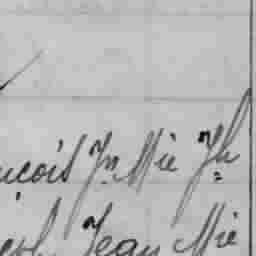 nçois Jn Mie Jh
Jean Mie